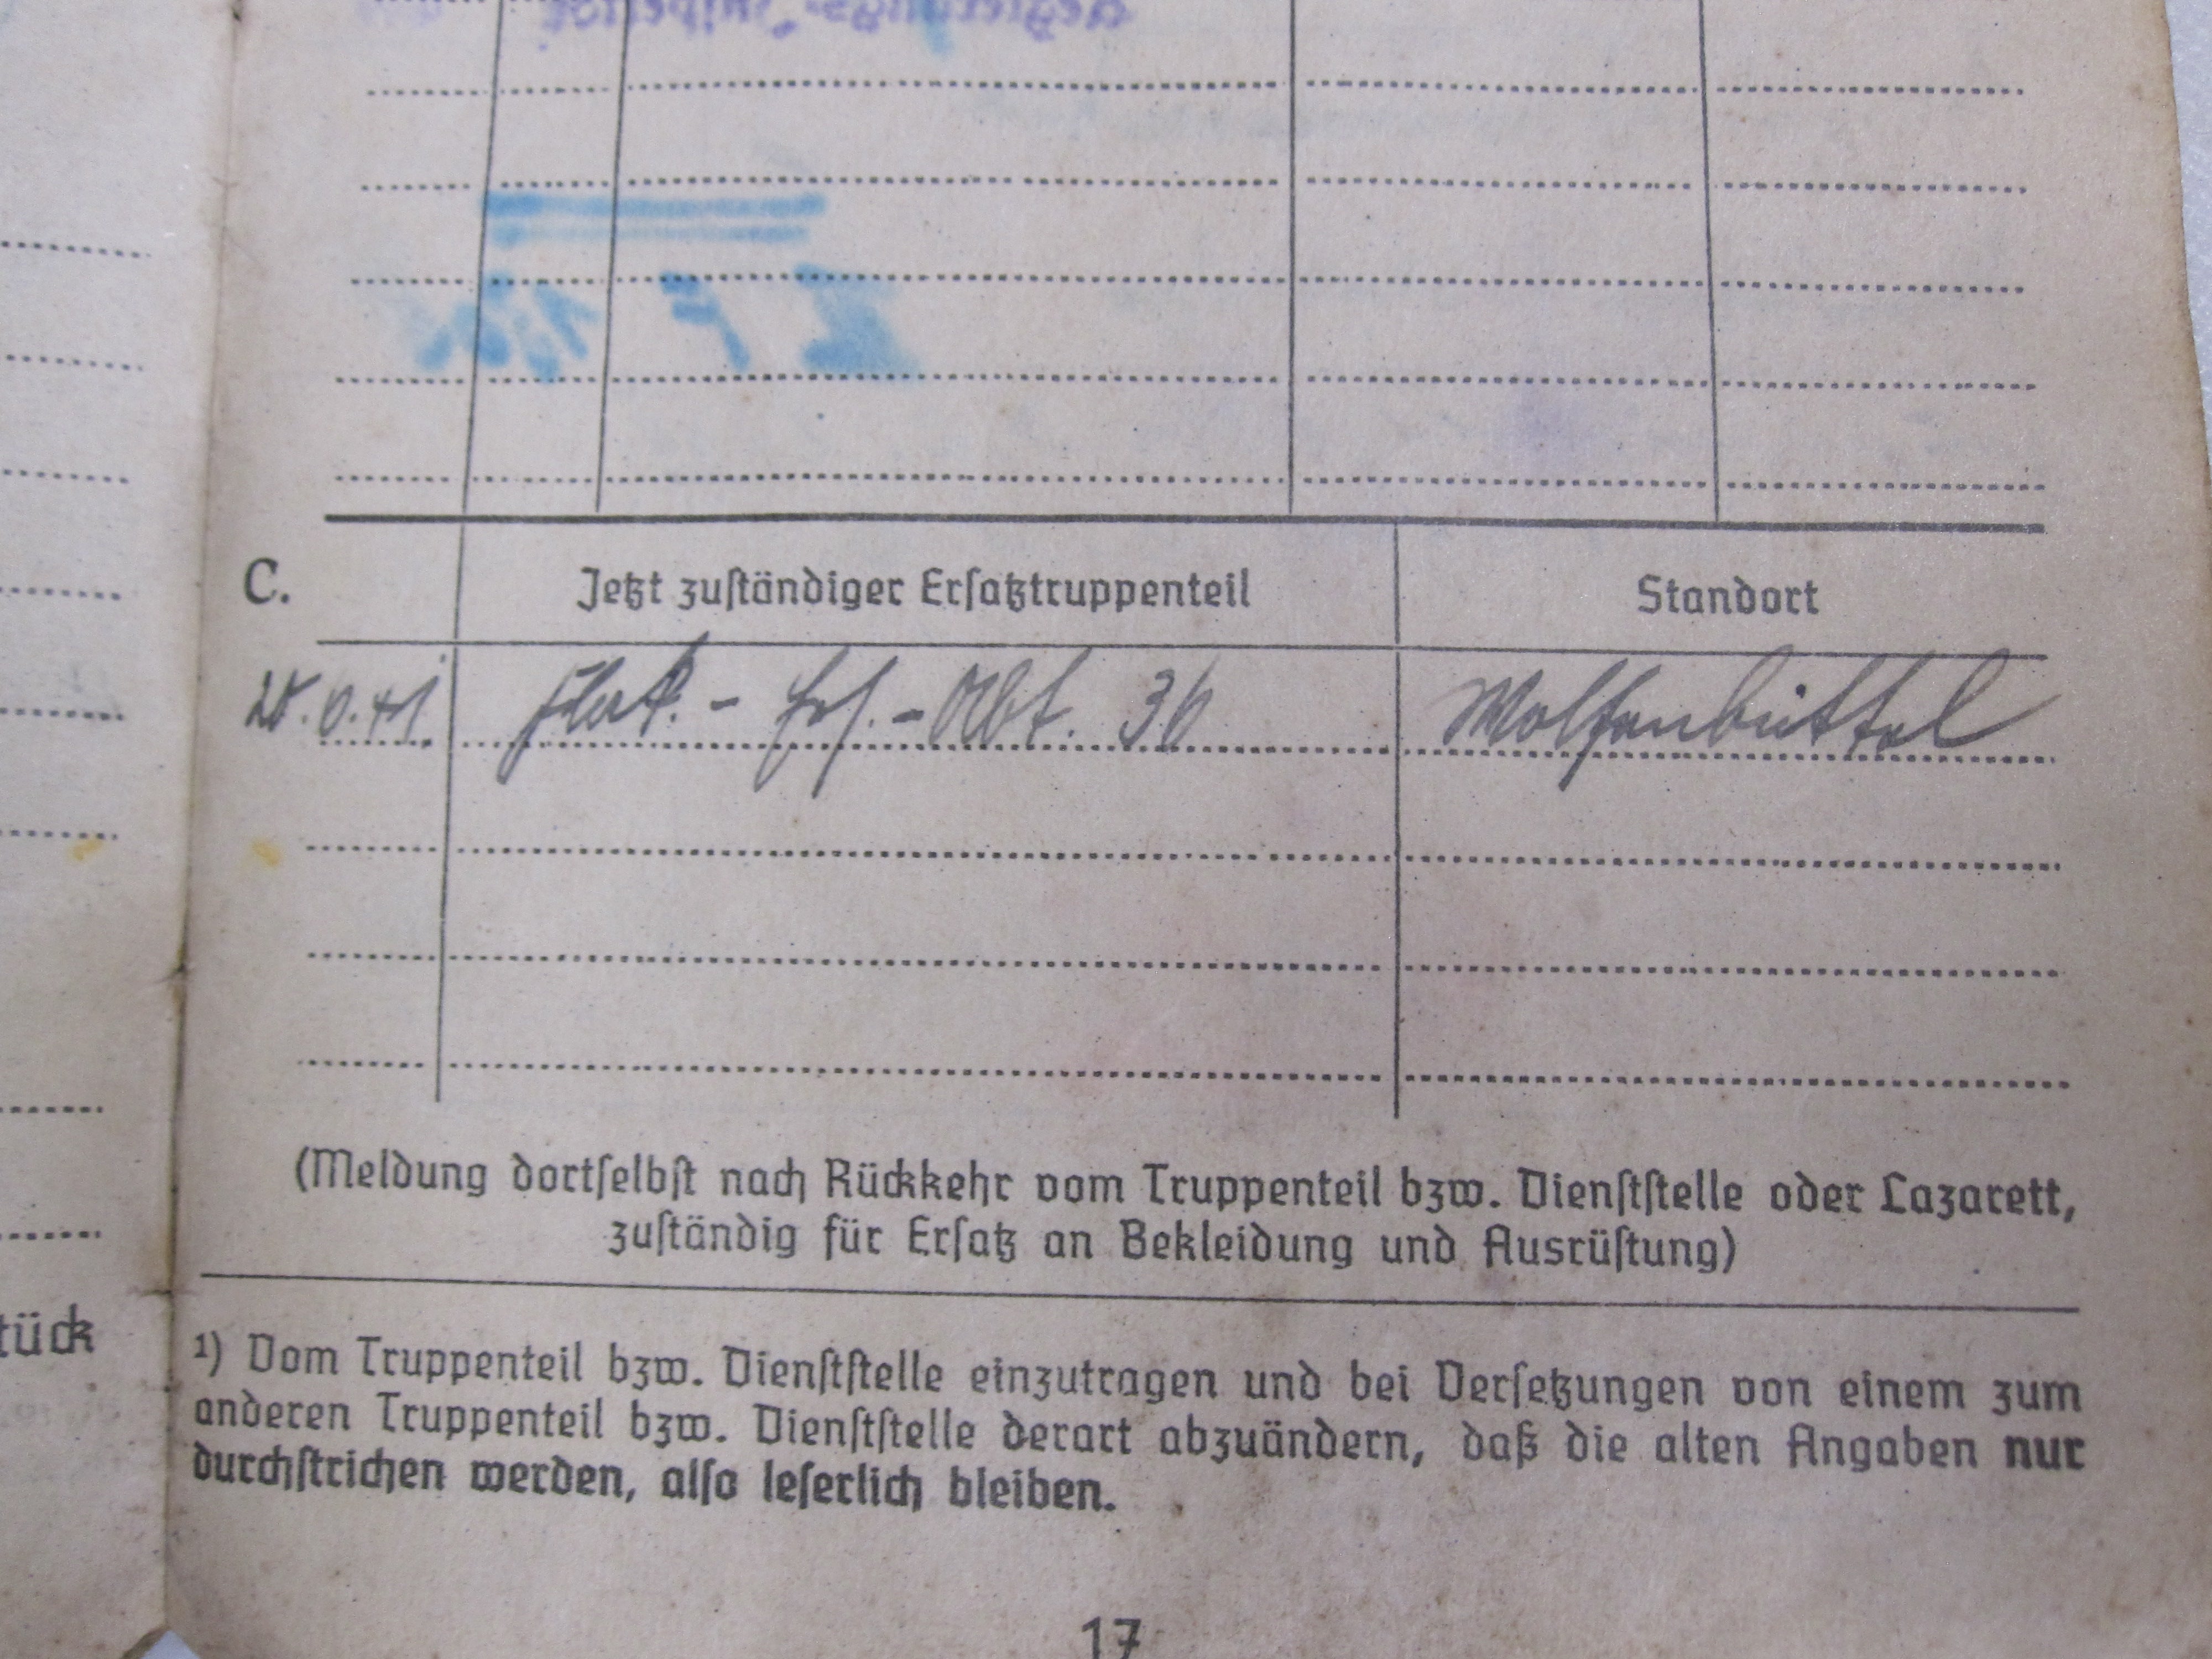 C. Jetzt zuständiger Ersatztruppenteil Standort
Flak.-Ers.-Abt. 36 Wolfenbüttel
(Meldung dortselbst nach Rückkehr vom Truppenteil bzw. Dienststelle oder Lazarett,
zuständig für Ersatz an Bekleidung und Ausrüstung)
1) Vom Truppenteil bzw. Dienststelle einzutragen und bei Versetzungen von einem zum
anderen Truppenteil bzw. Dienststelle derart abzuändern, daß die alten Angaben nur
durchstrichen werden, also leserlich bleiben.
17